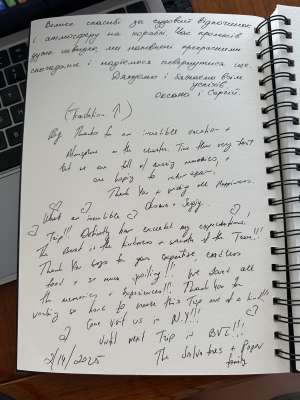 Велике спасибі за чудовий відпочинок
і атмосферу на кораблі. Час промайнув
дуже швидко, ми наповнені прекрасними
спогадами і надіємося повернутися ще.
Дякуємо і бажаємо всім
успіхів.
Оксана і Сергій.
(Translation ↑)
Big Thanks for an incredible vacation +
Atmosphere on the Time flew very fast
but we are full of memories, +
are hoping to return again.
Thank You + wishing all Happiness.
Oksana + Sergiy.
What an incredible
Trip!!! Definitely has exceeded my expectations!
The Best is the kindness + of the Team!!!
Thank You guys for your expertise, endless
food + so much spoiling!!! We loved all
the memories + experiences!!! Thank You for
working so hard to make this Trip one of a kind!!!
Come visit us in N.Y!!!
Until next Trip in BVI!!!
2/14/2025
The + 
family